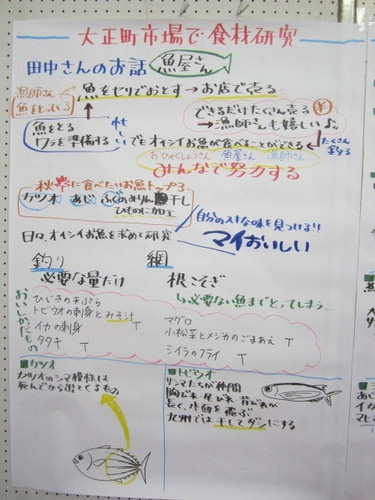 大正町市場で食材研究
田中さんのお話 魚屋さん
漁師さん
魚をとってくる
魚をセリでおとす→お店で売る
できるだけたくさん売る ¥
→漁師さんも嬉しい♪
たくさん
釣る
魚をとる
ワラを準備する
忙しい
でもオイシイお魚が食べることができる
おひゃくしょうさん 魚屋さん 漁師さん
みんなで努力する
秋に食べたいお魚トップ3
カツオ あじ ふぐのみりん干し
ひものに加工
自分のスキな味を見つける!!
日々、オイシイお魚を求めて研究
マイおいしい
釣り 網
必要な量だけ 根こそぎ
↳必要ない魚までとってしまう…
おいしかたもの
ひじきの天ぷら
トビウオの刺身とみそ汁
イカの刺身 T
タタキ T
マグロ
小松菜とメジカのごまあえ T
シイラのフライ T
■カツオ
カツオのシマ模様は
死んでから出てくるもの
■トビウオ
サンマたちが仲間
胸びれ 尾びれ 背びれが
長く、水面を飛ぶ
九州では干してダシにする